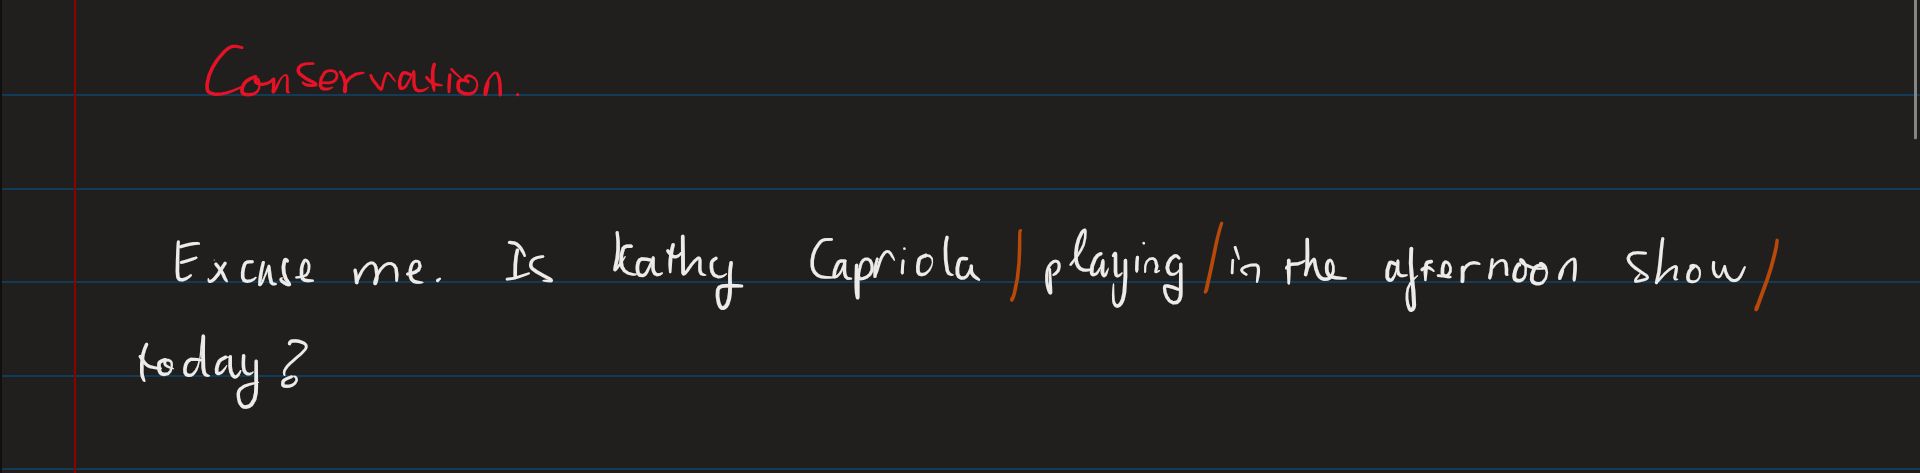 Conservation.
Excuse me. Is Kathy Capriola / playing / in the afternoon show /
today?